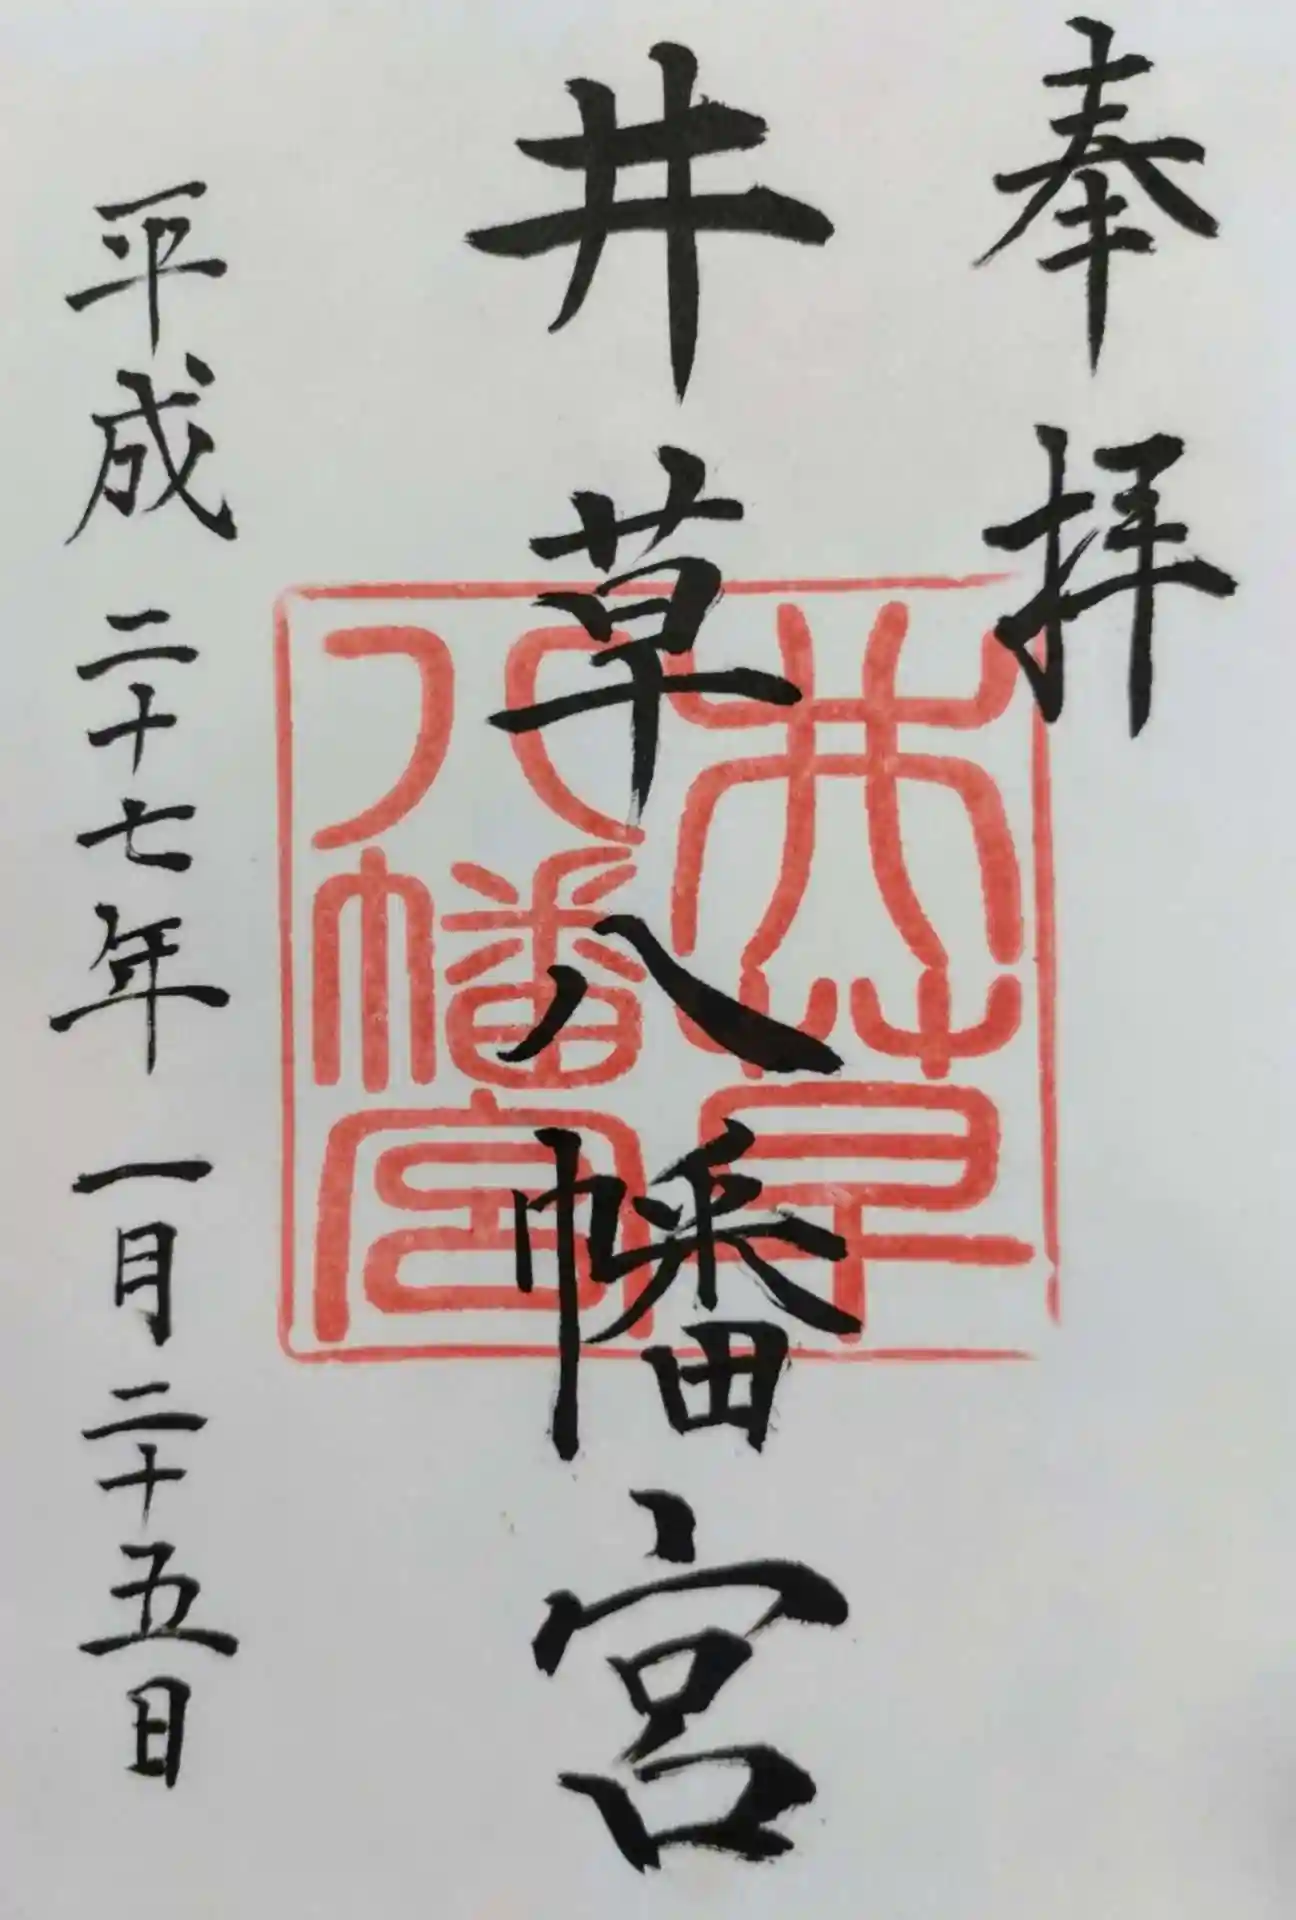 奉拝
井草八幡宮
井草
八幡宮
平成二十七年一月二十五日